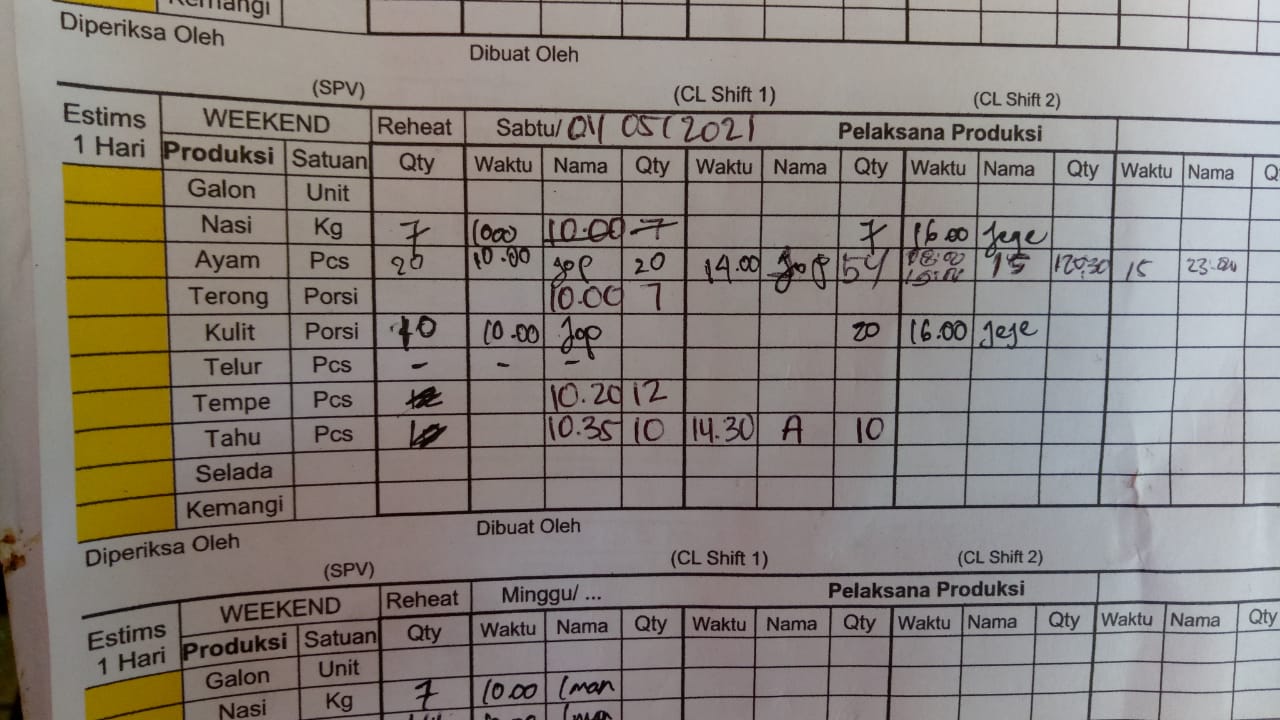 Kemangi
Diperiksa Oleh
Dibuat Oleh
(SPV) (CL Shift 1) (CL Shift 2)
Estims 1 Hari WEEKEND Reheat Sabtu/ 01/05/2021 Pelaksana Produksi
Produksi Satuan Qty Waktu Nama Qty Waktu Nama Qty Waktu Nama Qty Waktu Nama
Galon Unit
Nasi Kg 7 1000 10.00 7 7 16.00 Jeje
Ayam Pcs 20 10.00 Jop 20 14.00 Jop 54 15 15
Terong Porsi 10.00 7
Kulit Porsi 10 10.00 Jop 20 16.00 Jeje
Telur Pcs - - -
Tempe Pcs 10.20 12
Tahu Pcs 10.35 10 14.30 A 10
Selada
Kemangi
Diperiksa Oleh
Dibuat Oleh
(SPV) (CL Shift 1) (CL Shift 2)
Estims 1 Hari WEEKEND Reheat Minggu/ ... Pelaksana Produksi
Produksi Satuan Qty Waktu Nama Qty Waktu Nama Qty Waktu Nama Qty Waktu Nama Qty
Galon Unit
Nasi Kg 7 10.00 Iman